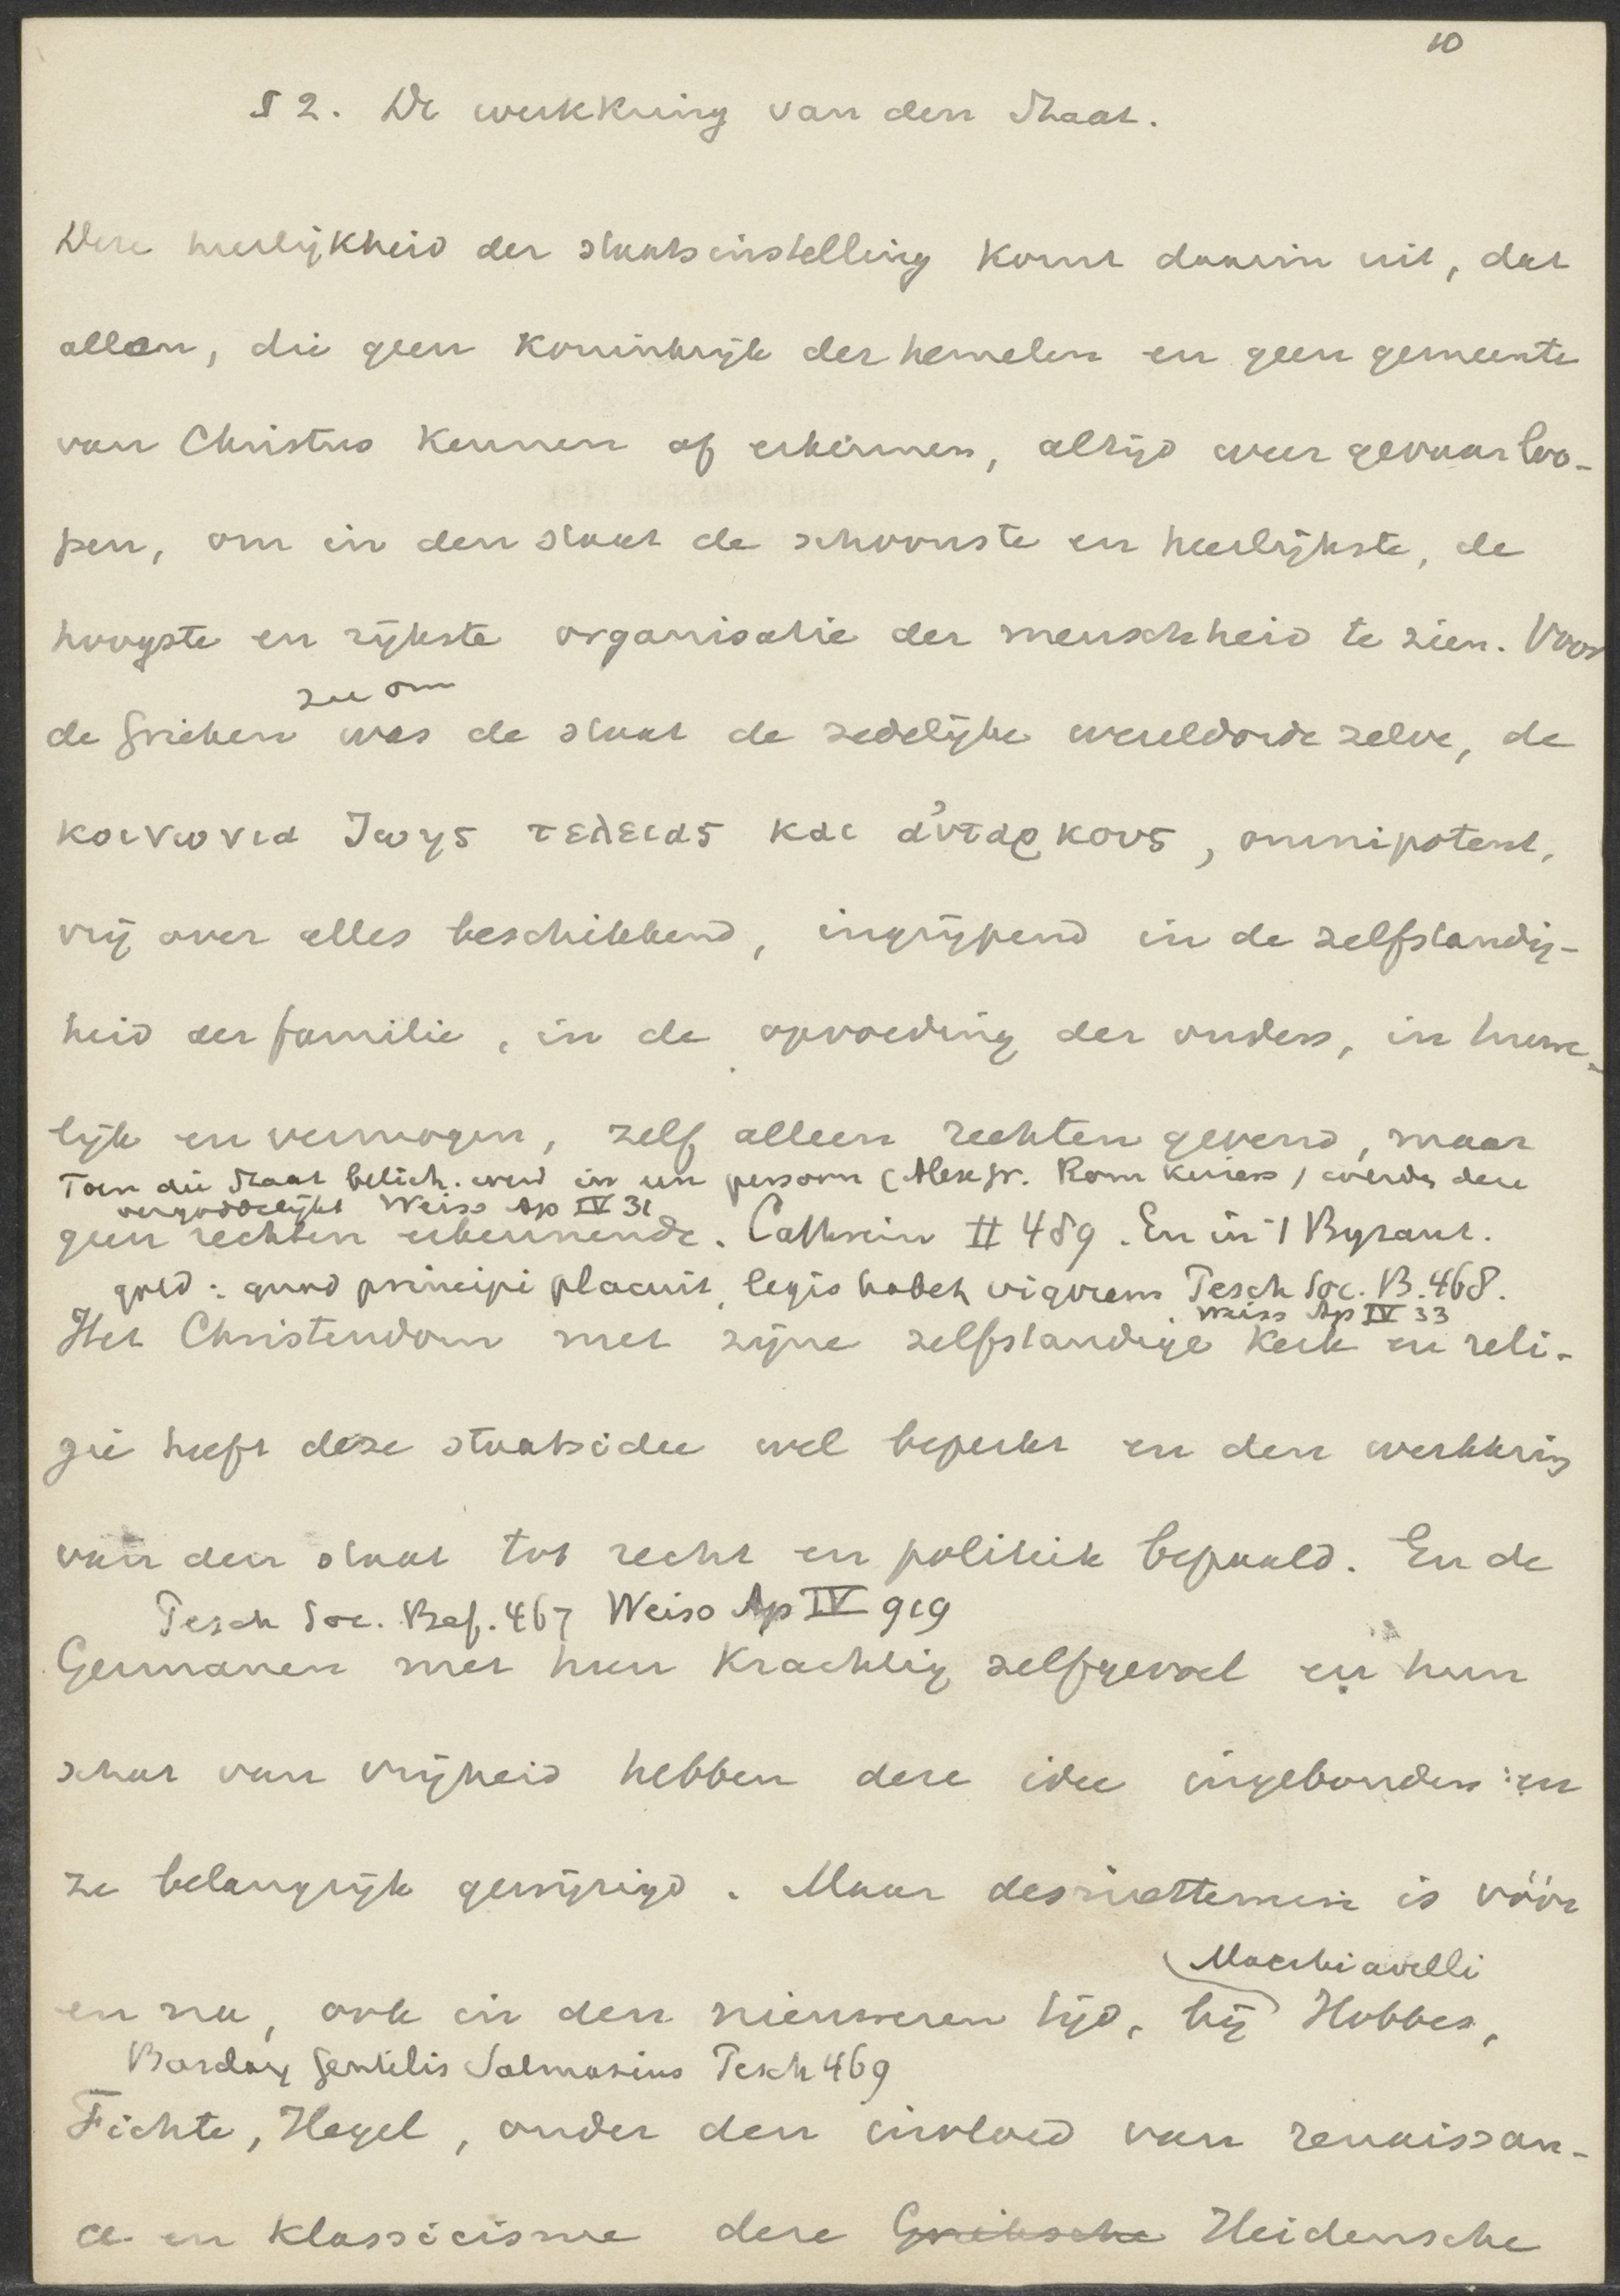 10
§ 2. De werkkring van den Staat.
Deze heerlijkheid der staatsinstelling komt daarin uit, dat
allen, die geen koninkrijk der hemelen en geen gemeente
van Christus kennen of erkennen, altijd weer gevaar loo-
pen, om in den staat de schoonste en heerlijkste, de
hoogste en rijkste organisatie der menschheid te zien. Voor
zie om
de Grieken was de staat de zedelijke wereldorde zelve, de
κοινωνια ζωης τελειας και αὐταρκους, omnipotent,
vrij over alles beschikkend, ingrijpend in de zelfstandig-
heid der familie, in de opvoeding der ouders, in huwe-
lijk en vermogen, zelf alleen rechten gevend, maar
Toen die Staat belich. werd in een persoon (Alex Gr. Rom keizers) werden deze
vergoddelijkt Weiss Ap IV 31
geen rechten erkennende. Cathrein II 459. En in 't Byzant.
gold: quod principi placuit, legis habet vigorem Pesch Soc. B. 468.
Weiss Ap IV 33
Het Christendom met zijne zelfstandige kerk en reli-
gie heeft deze staatsidee wel beperkt en den werkkring
van den staat tot recht en politiek bepaald. En de
Pesch Soc. Bef. 467 Weiss Ap IV 919
Germanen met hun krachtig zelfgevoel en hun
schat van vrijheid hebben deze idee ingebonden en
ze belangrijk gewijzigd. Maar desniettemin is vóór
Macchiavelli
en na, ook in den nieuweren tijd, bij Hobbes,
Barclay Gentilis Salmasius Pesch 469
Fichte, Hegel, onder den invloed van renaissan-
ce en klassicisme deze Grieksche Heidensche